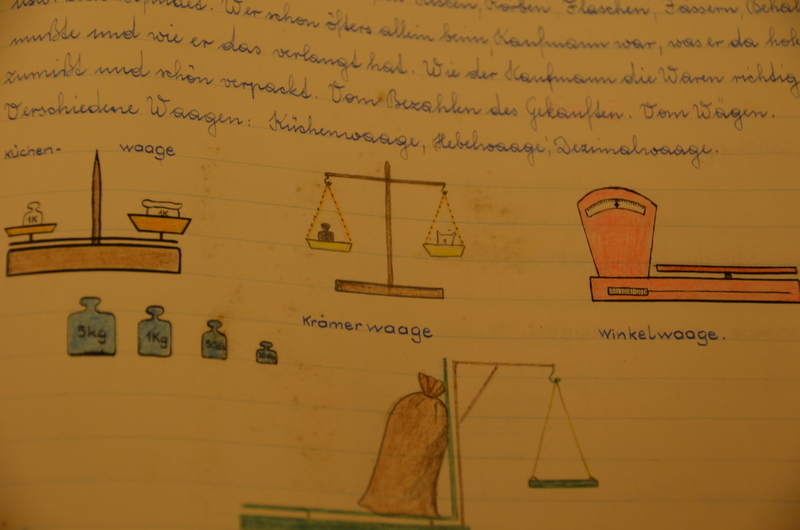 Kisten, Körben, Flaschen, Fässern, Behäl
Wer schon öfters allein beim Kaufmann war, was er da hol
mußte und wie er das verlangt hat. Wie der Kaufmann die Waren richtig
zumißt und schön verpackt. Vom Bezahlen des Gekauften. Vom Wägen.
Verschiedene Waagen: Küchenwaage, Hebelwaage, Dezimalwaage.
Küchen- waage
1K
1K
1
5kg
1Kg
Krämerwaage
Winkelwaage.